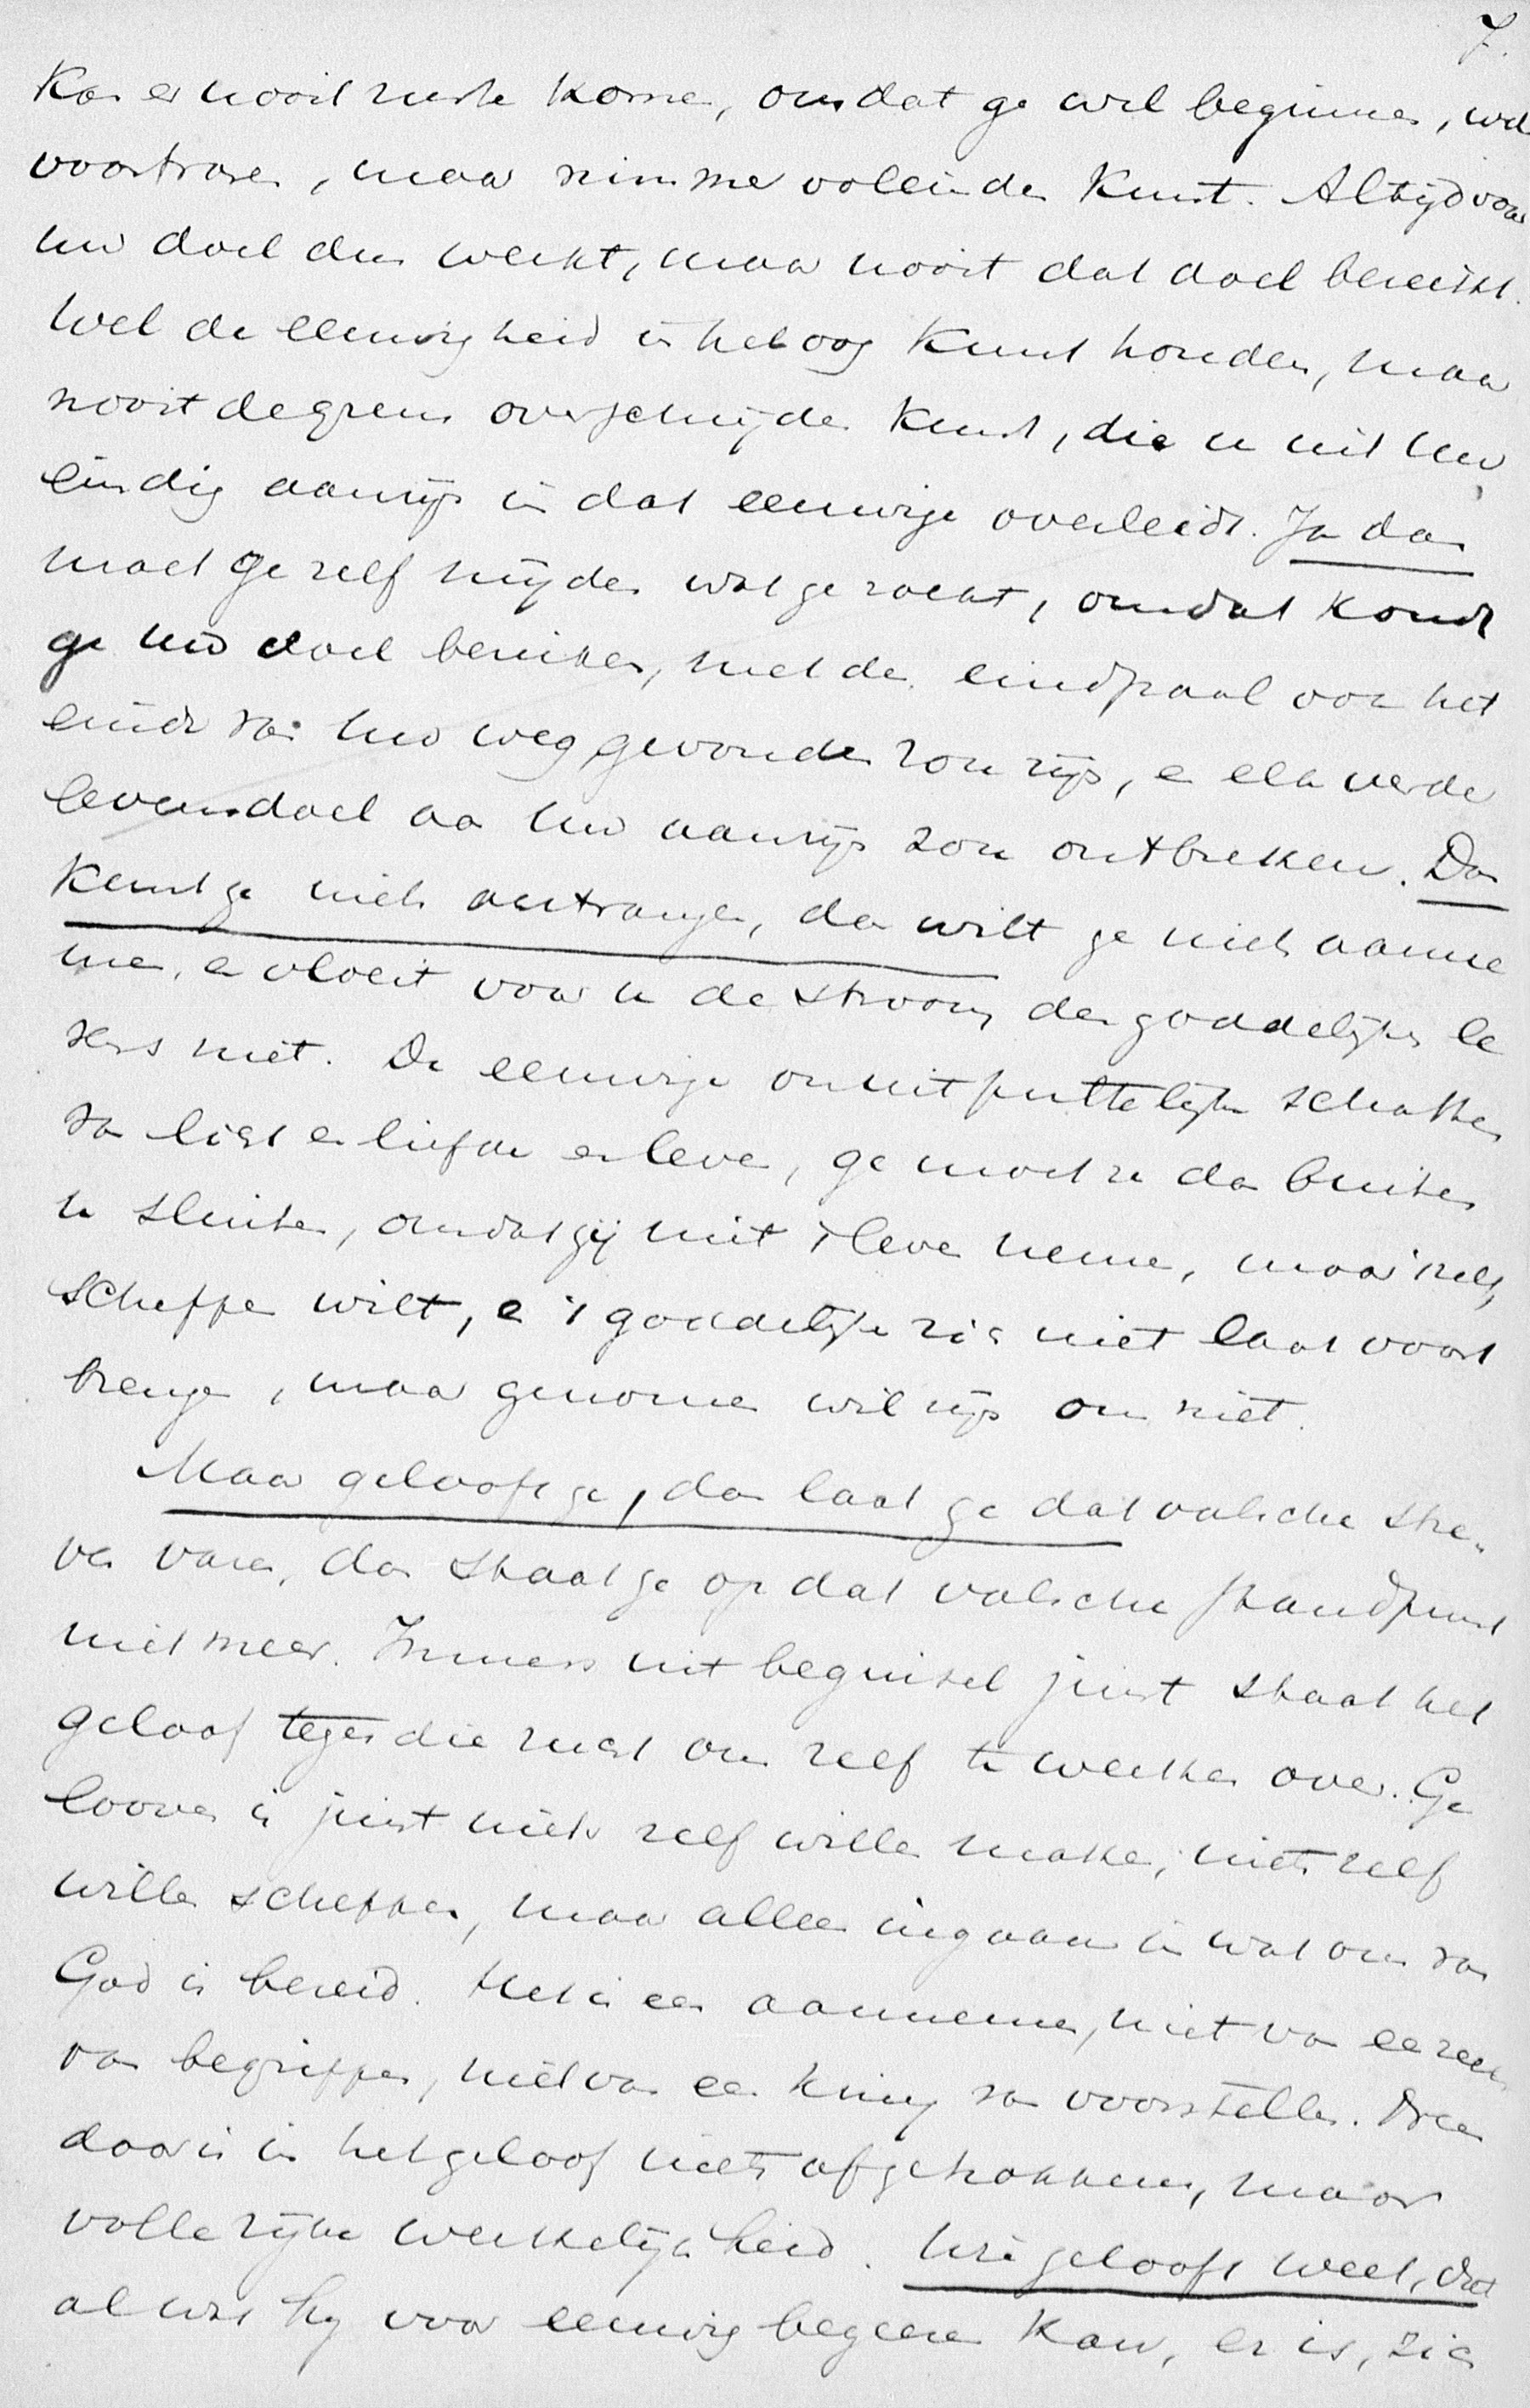 7.
Kan er nooit ruste komen, omdat ge wel beginnen, wel
voortrazen, maar nimmer voleinden kunt. Altijd voor
uw doel den werkt, maar nooit dat doel bereikt.
Wel de eeuwigheid in het oog kunt houden, maar
nooit de grens overschrijden kunt, die u uit uw
eindig aanzijn in dat eeuwige overleidt. Ja dan
moet ge zelf mijden wat ge zoekt, omdat kondt
ge uw doel bereiken, met den eindpaal ook het
einde van uw weg gevonden zou zijn, en elk verder
levensdoel aan uw aanzijn zou ontbreken. Dan
kunt ge niets ontvangen, dan wilt ge niets aanne
men, en vloeit voor u de stroom des goddelijken le
vens niet. De eeuwige onuitputtelijke schatten
van licht en liefde en leven, ge moet ze dan buiten
u sluiten, omdat gij niet 't leven nemen, maar 't zelf
scheppen wilt, en 't goddelijke zich niet laat voort
brengen, maar genomen wil zijn om niet.
Maar gelooft ge, dan laat ge dat valsche stre-
ven varen, dan staat ge op dat valsche standpunt
niet meer. Immers uit beginsel juist staat het
geloof tegen die zucht om zelf te werken over. Ge
looven is juist niets zelf willen maken, niets zelf
willen scheppen, maar alleen ingaan in wat ons van
God is bereid. Het is een aannemen, niet van een reeks
van begrippen, niet van een kring van voorstellen.
daar is in het geloof niets afgetrokkens, maar
volle rijke werkelijkheid. Wie gelooft weet, dat
al wat hij voor eeuwig begeeren kan, er is, zich